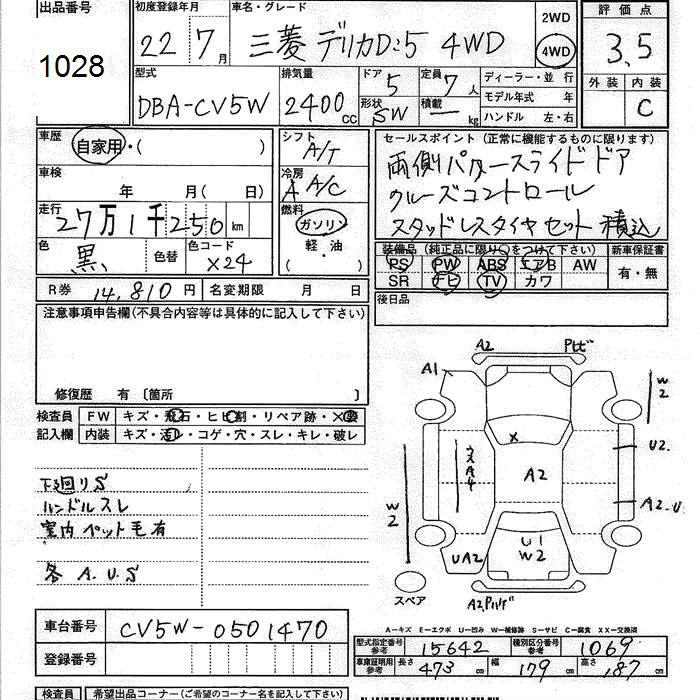 出品番号 1028
初度登録年月 22年 7月
車名・グレード 三菱 デリカD:5 4WD
2WD 4WD
評価点 3.5
外装 内装 C
型式 DBA-CV5W
排気量 2400 CC
ドア 5
形状 SW
定員 7人
積載 ー kg
ディーラー・並行
モデル年式 年
ハンドル 左・右
車歴 自家用・( )
車検 年 月( 日)
走行 27万1千250 km
色 黒 色替
色コード X24
シフト A/T
冷房 A A/C
燃料 ガソリン
軽・油
( )
セールスポイント (正常に機能するものに限ります)
両側パワースライドドア
クルーズコントロール
スタッドレスタイヤセット積込
装備品(純正品に限り○をつけて下さい)
PS PW ABS エアB AW
SR ナビ TV カワ
新車保証書
有・無
後日品
R券 14,810円
名変期限 月 日
注意事項申告欄(不具合内容等は具体的に記入して下さい)
修復歴 有 〔箇所 〕
検査員 記入欄
FW キズ・飛石・ヒビ割・リペア跡・X要
内装 キズ・汚レ・コゲ・穴・スレ・キレ・破レ
下回りS
ハンドルスレ
室内ペット毛有
各 A.U.S
A2
A1
W2
U2
A2
A4
W2
UA2
U1
W2
スペア
A-キズ E-エクボ U-凹み W-補修跡 S-サビ C-腐食 XX-交換済
車台番号 CV5W-0501470
登録番号
型式指定番号 参考 15642
種別区分番号 参考 1069
車庫証明用 参考 長さ 473 cm 幅 179 cm 高さ 187 cm
検査員 希望出品コーナー(ご希望のコーナー名を記入下さい)